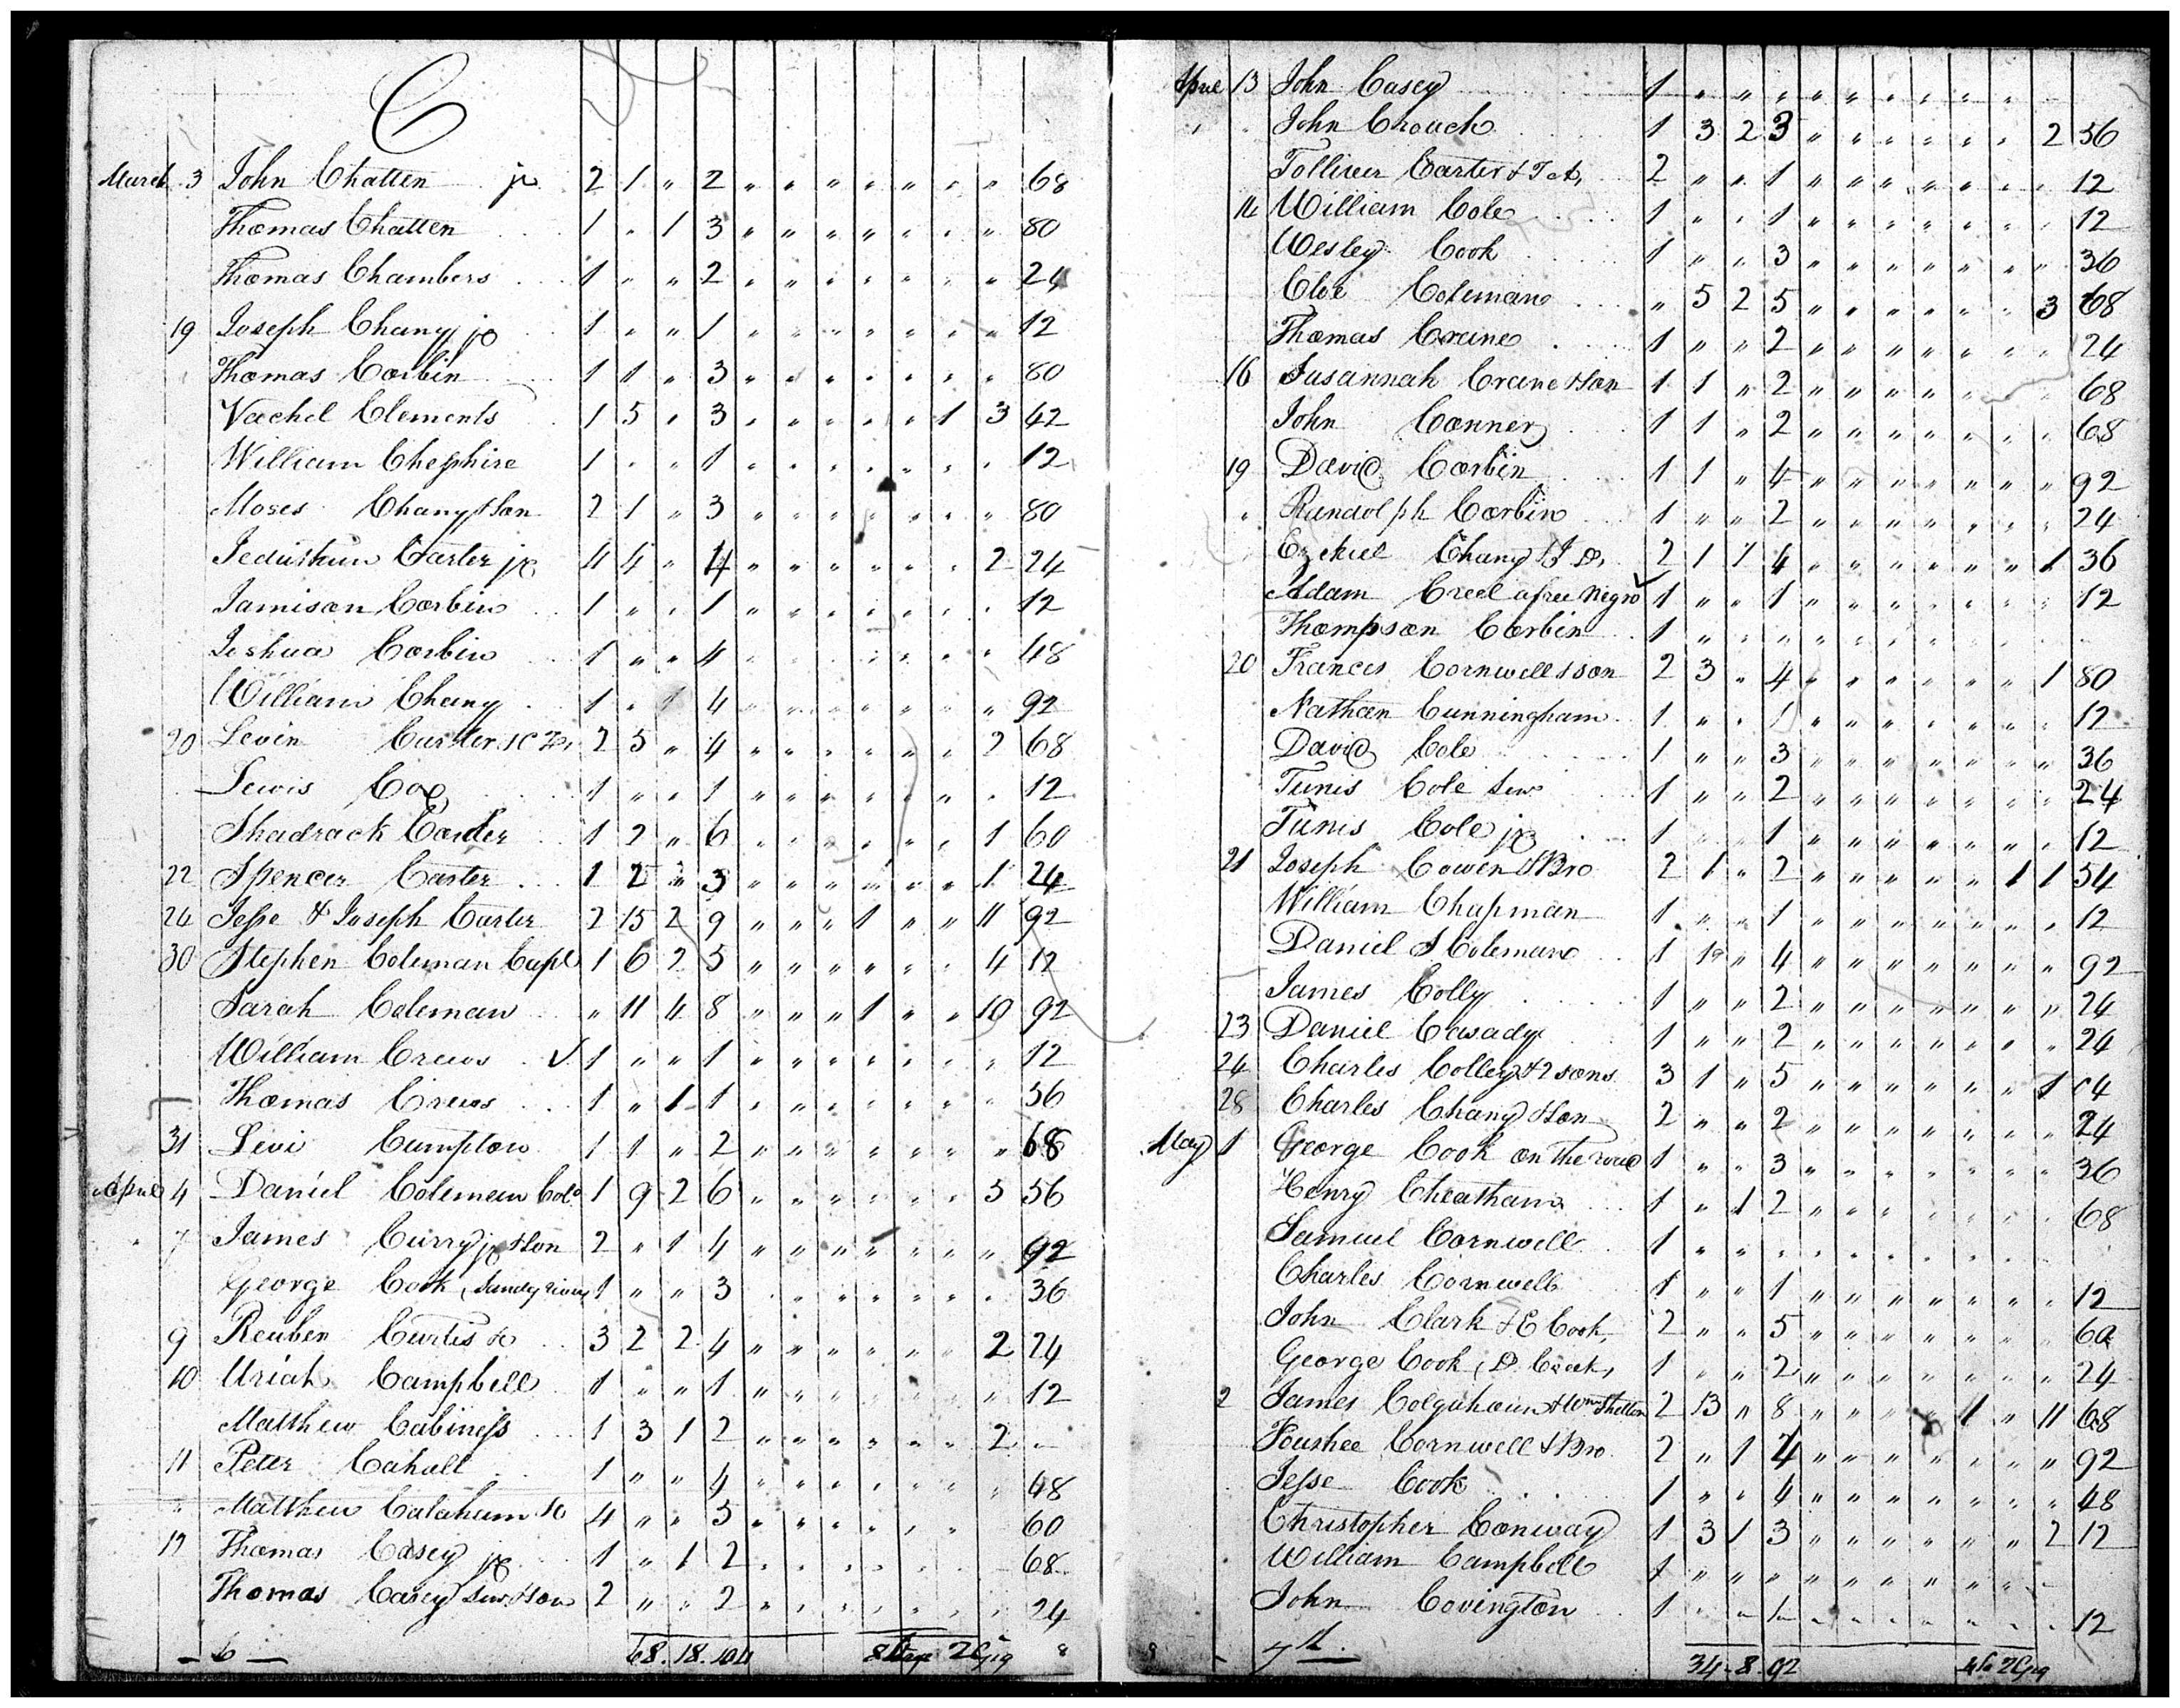 C
March 3 John Chatten jr 2 1 " 2 " " " " " " " 68
Thomas Chatten 1 " 1 3 " " " " " " " 80
Thomas Chambers 1 " " 2 " " " " " " " 24
19 Joseph Chany jr 1 " " 1 " " " " " " " 12
Thomas Corbin 1 1 " 3 " " " " " " " 80
Vachel Clements 1 5 " 3 " " " " " 1 3 42
William Cheshire 1 " " 1 " " " " " " " 12
Moses Chany & son 2 1 " 3 " " " " " " " 80
Jeduthun Carter jr 4 4 " 4 " " " " " " 2 24
Jamison Corbin 1 " " 1 " " " " " " " 12
Joshua Corbin 1 " " 4 " " " " " " " 48
William Chany 1 " 1 4 " " " " " " " 92
20 Levin Carter 2 5 " 4 " " " " " " 2 68
Lewis Cox 1 " " 1 " " " " " " " 12
Shadrack Carter 1 2 " 6 " " " " " " 1 60
22 Spencer Carter 1 2 " 3 " " " " " " 1 24
24 Jesse & Joseph Carter 2 15 2 9 " " " 1 " " 11 92
30 Stephen Coleman Capt 1 6 2 5 " " " " " " 4 12
Sarah Coleman " 11 4 8 " " " 1 " " 10 92
William Crews ✓ 1 " " 1 " " " " " " " 12
Thomas Crews 1 " 1 1 " " " " " " " 56
31 Levi Cumpton 1 1 " 2 " " " " " " " 68
April 4 Daniel Coleman Colo 1 9 2 6 " " " " " " 5 56
7 James Curry jr & son 2 " 1 4 " " " " " " " 92
George Cook (Sandy river) 1 " " 3 " " " " " " " 36
9 Reuben Curtis &c 3 2 2 4 " " " " " " 2 24
10 Uriah Campbell 1 " " 1 " " " " " " " 12
Matthew Cabiness 1 3 1 2 " " " " " " 2 "
11 Peter Cahall 1 " " 4 " " " " " " " 48
" Matthew Calahum &c 4 " " 5 " " " " " " 60
12 Thomas Casey jr 1 " 1 2 " " " " " " 68
Thomas Casey Senr & son 2 " " 2 " " " " " " " 24
6 68. 18. 104 2 Gig 8
April 13 John Casey 1 " " " " " " " " " "
" " John Crouch 1 3 2 3 " " " " " " 2 56
Tolliver Carter & T A, 2 " " 1 " " " " " " " 12
14 William Cole 1 " " 1 " " " " " " " 12
Wesley Cook 1 " " 3 " " " " " " " 36
Cloe Coleman " 5 2 5 " " " " " " 3 68
Thomas Craine 1 " " 2 " " " " " " " 24
16 Susannah Crane & son 1 1 " 2 " " " " " " " 68
John Conner 1 1 " 2 " " " " " " " 68
19 David Corbin 1 1 " 4 " " " " " " " 92
" Randolph Corbin 1 " " 2 " " " " " " " 24
Ezekiel Chany & J D, 2 1 1 4 " " " " " " 1 36
Adam Creel a free Negro ✓ 1 " " 1 " " " " " " " 12
Thompson Corbin 1 " " " " " " " " "
20 Frances Cornwell & son 2 3 " 4 " " " " " " 1 80
Nathan Cunningham 1 " " 1 " " " " " " " 12
David Cole 1 " " 3 " " " " " " " 36
Tunis Cole Senr 1 " " 2 " " " " " " " 24
Tunis Cole jr 1 " " 1 " " " " " " " 12
21 Joseph Cowen & Bro 2 1 " 2 " " " " " 1 1 54
William Chapman 1 " " 1 " " " " " " " 12
Daniel S Coleman 1 1 " 4 " " " " " " " 92
James Colly 1 " " 2 " " " " " " " 24
23 Daniel Casady 1 " " 2 " " " " " " " 24
24 Charles Colley & 2 sons 3 1 " 5 " " " " " " 1 04
28 Charles Chany & son 2 " " 2 " " " " " " " 24
May 1 George Cook on the road 1 " " 3 " " " " " " " 36
Henry Cheatham 1 " 1 2 " " " " " " " 68
Samuel Cornwell 1 " " " " " " " "
Charles Cornwell 1 " " 1 " " " " " " " 12
John Clark & E Cook, 2 " " 5 " " " " " " " 60
George Cook (D. Creek, 1 " " 2 " " " " " " " 24
2 James Colquhoun & Wm Shelton 2 13 " 8 " " " " 1 " 11 68
Foushee Cornwell & Bro 2 " 1 4 " " " " " " " 92
Jesse Cook 1 " " 4 " " " " " " " 48
Christopher Conway 1 3 1 3 " " " " " " 2 12
William Campbell 1 " " " " " " " " "
John Covington 1 " " 1 " " " " " " " 12
8 34 - 8. 92 2 Gig